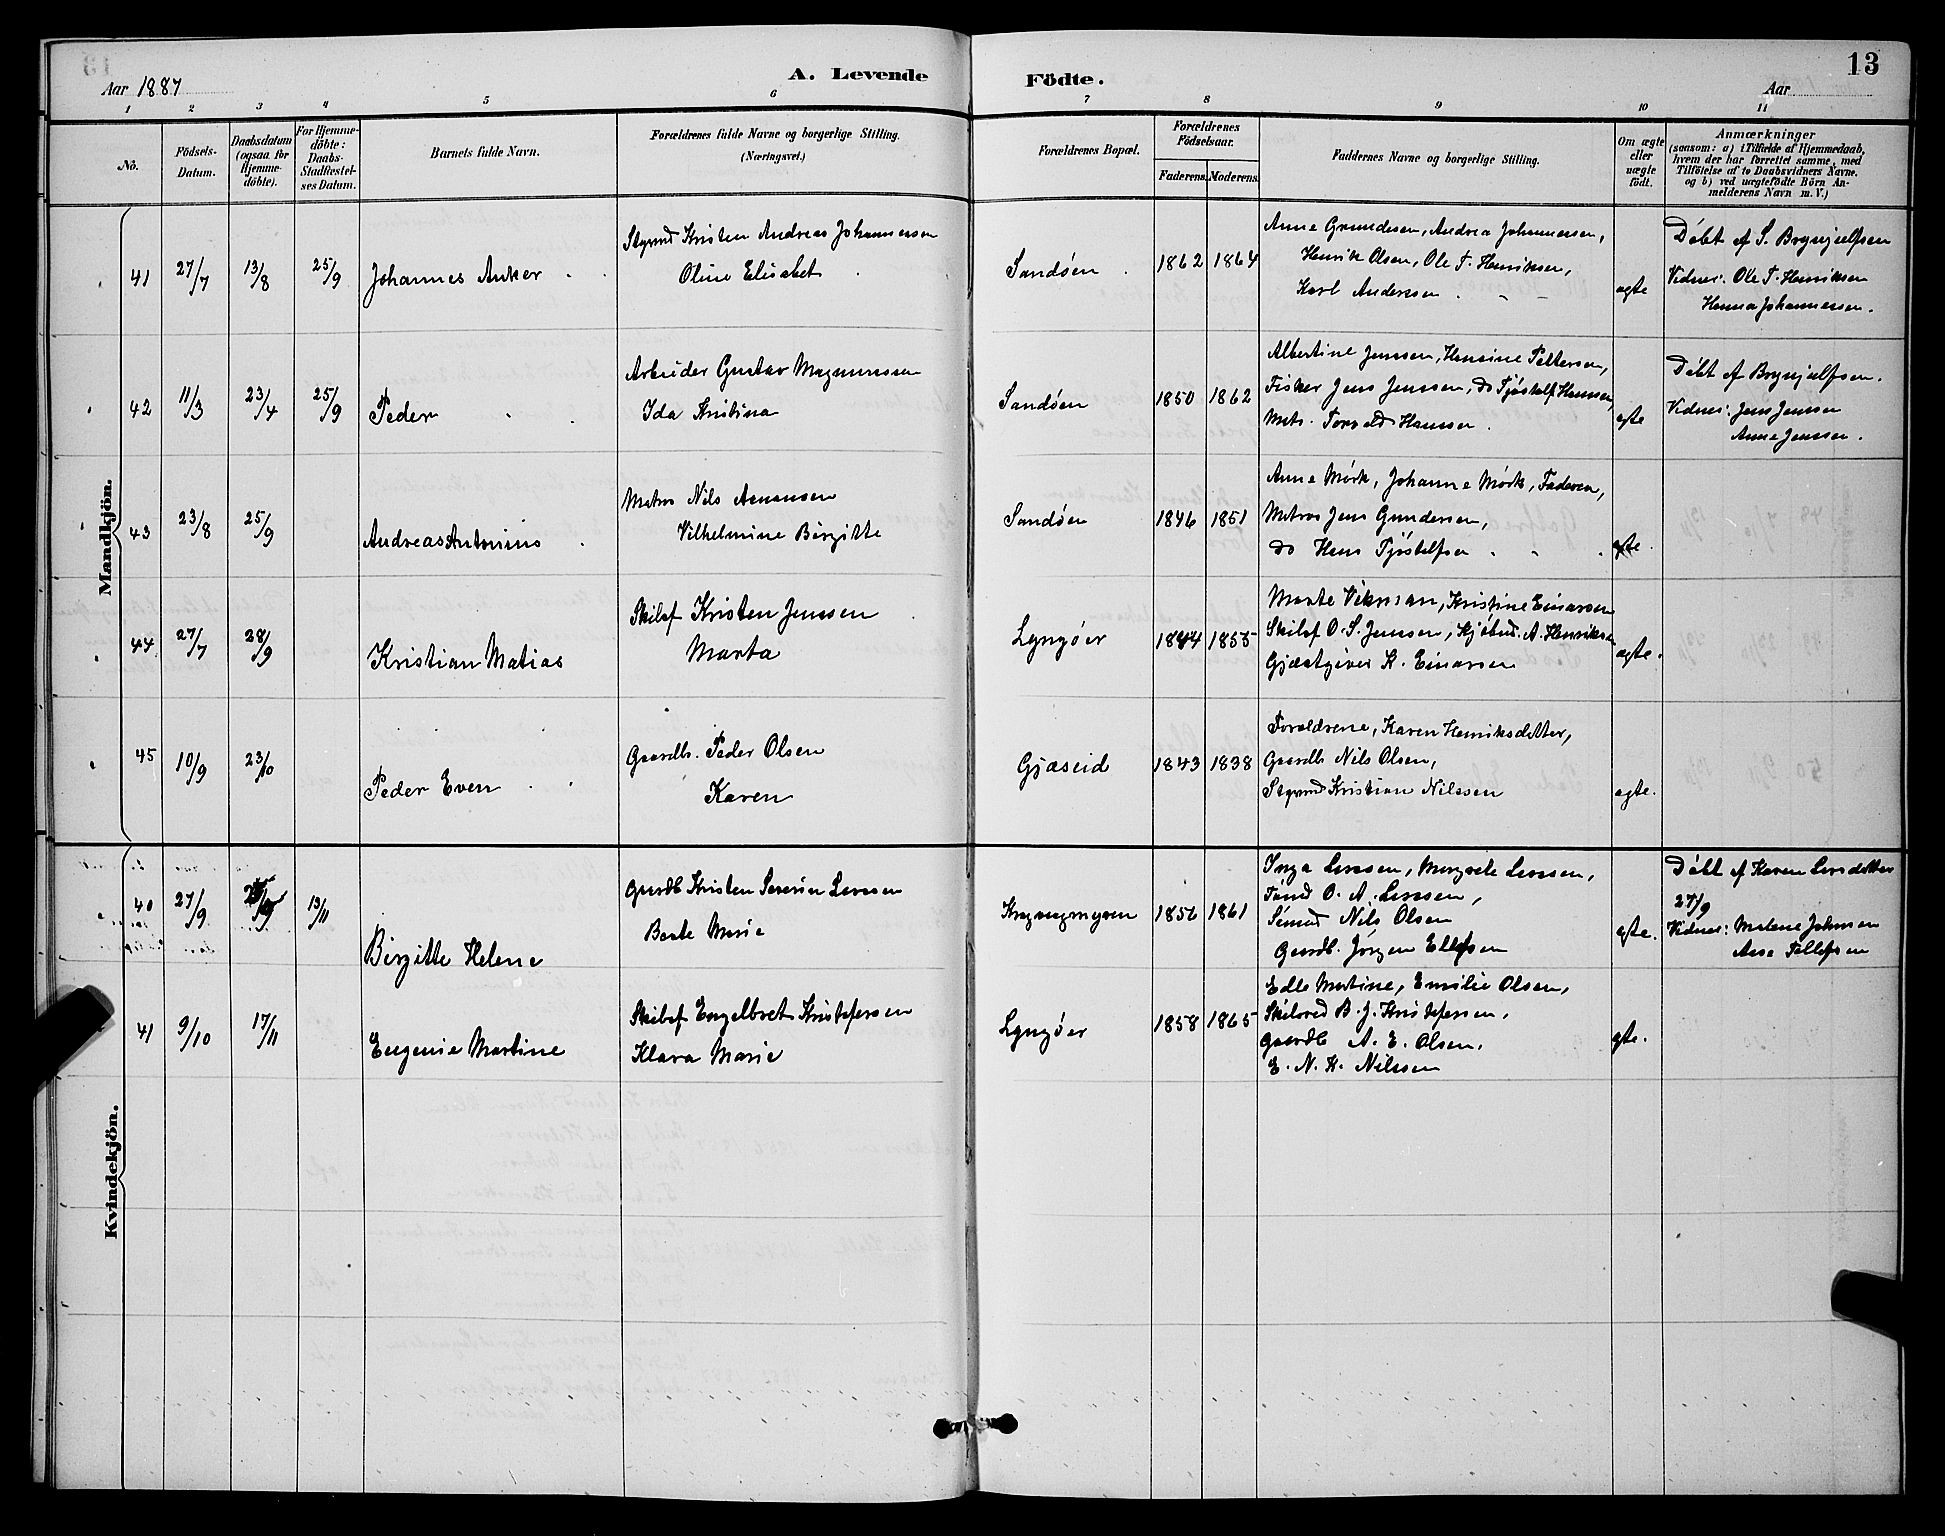 13
Aar 1887
A. Levende
Födte.
Aar
1 2 3 4 5 6 7 8 9 10 11
Nô.
Födsels-
Datum.
Daabsdatum
(ogsaa for
Hjemme-
döbte).
For Hjemme-
döbte:
Daabs-
Stadfæstel-
ses Datum.
Barnets fulde Navn.
Forældrenes fulde Navne og borgerlige Stilling.
(Næringsvei.)
Forældrenes Bopæl.
Forældrenes
Födselsaar.
Faderens. Moderens.
Faddernes Navne og borgerlige Stilling.
Om ægte
eller
uægte
födt.
Anmærkninger
(saasom: a) i Tilfælde af Hjemmedaab,
hvem der har forrettet samme, med
Tilföielse af to Daabsvidners Navne.
og b) ved uægtefödte Börn An-
melderens Navn m. V.)
Mandkjön.
41 27/7 13/8 25/9 Johannes Anker
Kristen Andreas Johannessen
Oline Elisabet
Sandøen 1862 1864
Anne Gundesen, Andrea Johannessen,
Henrik Olsen, Ole T. Henriksen,
Karl Andersen
ægte
Døbt af S. Brynjulfsen
Vidner: Ole T. Henriksen
Hanna Johannessen.
42 11/3 23/4 25/9 Peder
Arbeider Gustav Magnussen
Ida Kristina
Sandøen 1850 1862
Albertine Jenssen, Hansine Pettersen,
Fisker Jens Jenssen, do Tjøstolf Hanssen,
Matr. Torvald Hanssen.
ægte
Døbt af Brynjulfsen.
Vidner: Jens Jenssen
Anne Jenssen.
43 23/8 25/9 Andreas Antonius
Matros Nils Aanonsen
Vilhelmine Birgitte
Sandøen 1846 1851
Anne Mørk, Johanne Mørk, Faderen,
Matros Jens Gundersen,
do Hans Tjøstolfsen
ægte.
44 27/7 28/9 Kristian Matias
Skibsf Kristen Jenssen
Marta
Lyngøer 1844 1855
Marte Vikman, Kristine Einarsen
Skibsf O. S. Jenssen, Kjøbmd. A. Henriksen
Gjæstgiver K. Einarsen
ægte.
45 10/9 23/10 Peder Even
Gaardb. Peder Olsen
Karen
Gjæseid 1843 1838
Forældrene, Karen Henriksdatter,
Gaardb Nils Olsen,
Styrmd Kristian Nilssen
ægte.
Kvindekjön.
40 27/9 13/11 Birgitte Helene
Gaardb Kristen Severin Larssen
Berte Marie
1856 1861
Inga Larssen, Margrete Larssen,
O. A. Larssen,
Sømd Nils Olsen
Gaardb. Jørgen Ellefsen
ægte.
Døbt af Karen Larsdatter
27/9
Vidner: Malene Johnsen
Aase Tellefsen
41 9/10 17/11 Eugenie Martine
Skibsf Engelbret Kristofersen
Klara Marie
Lyngøer 1858 1865
Edle Martine, Emilie Olsen,
Skibsred B. J. Kristofersen,
Gaardb A. E. Olsen,
E. N. K. Nilssen
ægte.